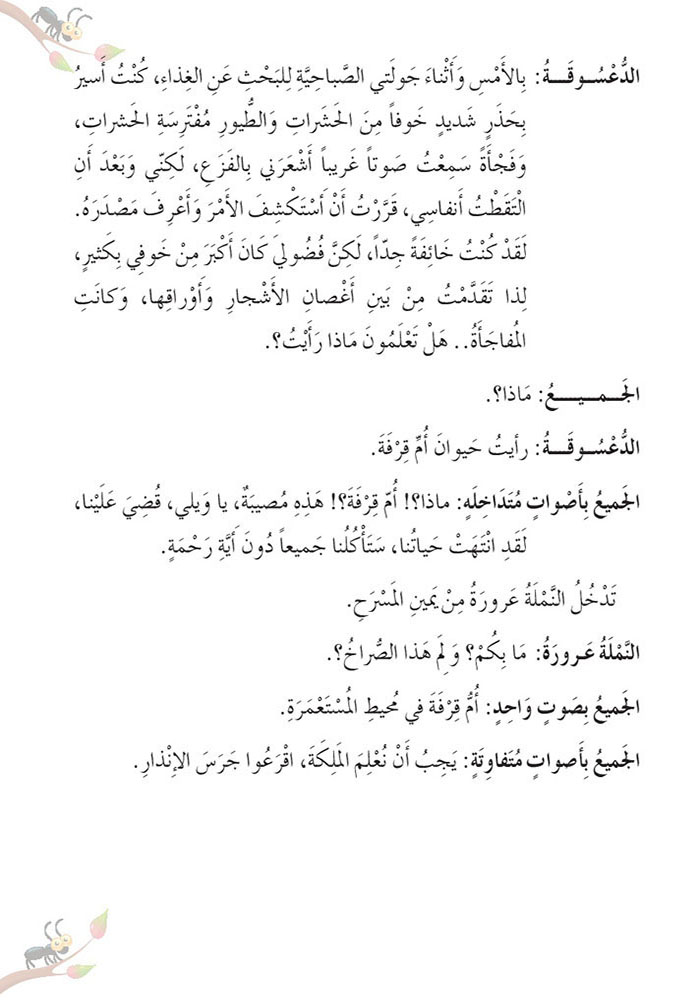 الدُّعْسُـوقَـــةُ: بِالأَمْسِ وَأَثْناءَ جَولَتي الصَّباحِيَّةِ لِلبَحْثِ عَنِ الغِذاءِ، كُنْتُ أَسيرُ
بِحَذَرٍ شَديدٍ خَوفاً مِنَ الحَشَراتِ وَالطُّيورِ مُفْتَرِسَةِ الحَشراتِ،
وَفَجْأَةً سَمِعْتُ صَوتاً غَريباً أَشْعَرَني بِالفَزَعِ، لَكِنّي وَبَعْدَ أَنِ
الْتَقَطْتُ أَنفاسِي، قَرَّرْتُ أَنْ أَسْتَكْشِفَ الأَمْرَ وَأَعْرِفَ مَصْدَرَهُ.
لَقَدْ كُنْتُ خَائِفَةً جِدّاً، لَكِنَّ فُضُوليَ كَانَ أَكْبَرَ مِنْ خَوفي بِكَثيرٍ،
لِذا تَقَدَّمْتُ مِنْ بَينِ أَغْصانِ الأَشْجارِ وَأَوْراقِها، وَكانَتِ
المُفاجَأَةُ.. هَلْ تَعْلَمُونَ مَاذا رَأَيْتُ؟.
الجَـمـيــــعُ: مَاذا؟.
الدُّعْسُـوقَـــةُ: رأيتُ حَيوانَ أُمِّ قِرْفَةَ.
الجَميعُ بِأَصْواتٍ مُتَداخِلَهٍ: ماذا؟! أُمّ قِرْفَةَ؟! هَذِهِ مُصيبَةٌ، يا وَيلي، قُضِيَ عَلَيْنا،
لَقَدِ انْتَهَتْ حَياتُنا، سَتَأْكُلُنا جَميعاً دُونَ أَيَّةِ رَحْمَةٍ.
تَدْخُلُ النَّمْلَةُ عَرورَةُ مِنْ يَمينِ المَسْرَحِ.
النَّمْلَةُ عَـرورَةُ: مَا بِكُمْ؟ وَلِمَ هَذا الصُّراخُ؟.
الجَميعُ بِصَوتٍ وَاحِدٍ: أُمُّ قِرْفَةَ في مُحيطِ المُسْتَعْمَرَةِ.
الجَميعُ بِأَصواتٍ مُتَفاوِتَةٍ: يَجِبُ أَنْ نُعْلِمَ المَلِكَةَ، اقْرَعُوا جَرَسَ الإنْذارِ.